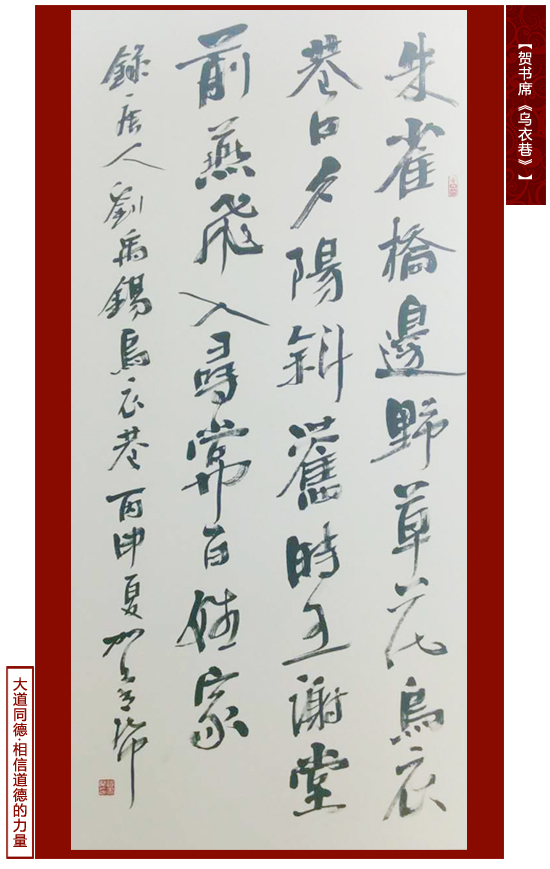 【贺书席《乌衣巷》】
朱雀橋邊野草花烏衣
巷口夕陽斜舊時王謝堂
前燕飛入尋常百姓家
錄唐人劉禹錫烏衣巷丙申夏賀書席
大道同德·相信道德的力量